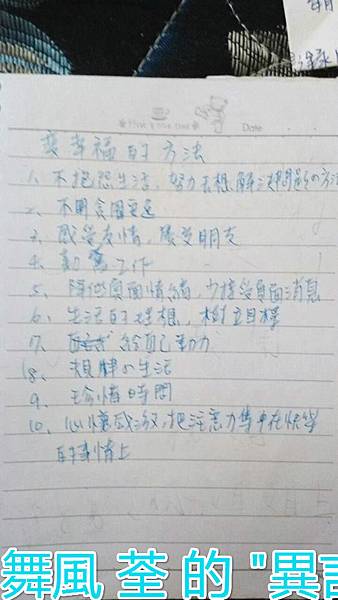 Date
變幸福的方法
1、不抱怨生活，努力去想解決問題的方法
2、不用貪圖安逸
3、感受友情，接受朋友
4、勤奮工作
5、降低負面情緒，少接受負面消息
6、生活的理想，樹立目標
7、給自己動力
8、規律的生活
9、珍惜時間
10、心懷感激，把注意力集中在快樂
的事情上
舞風荃的"異言